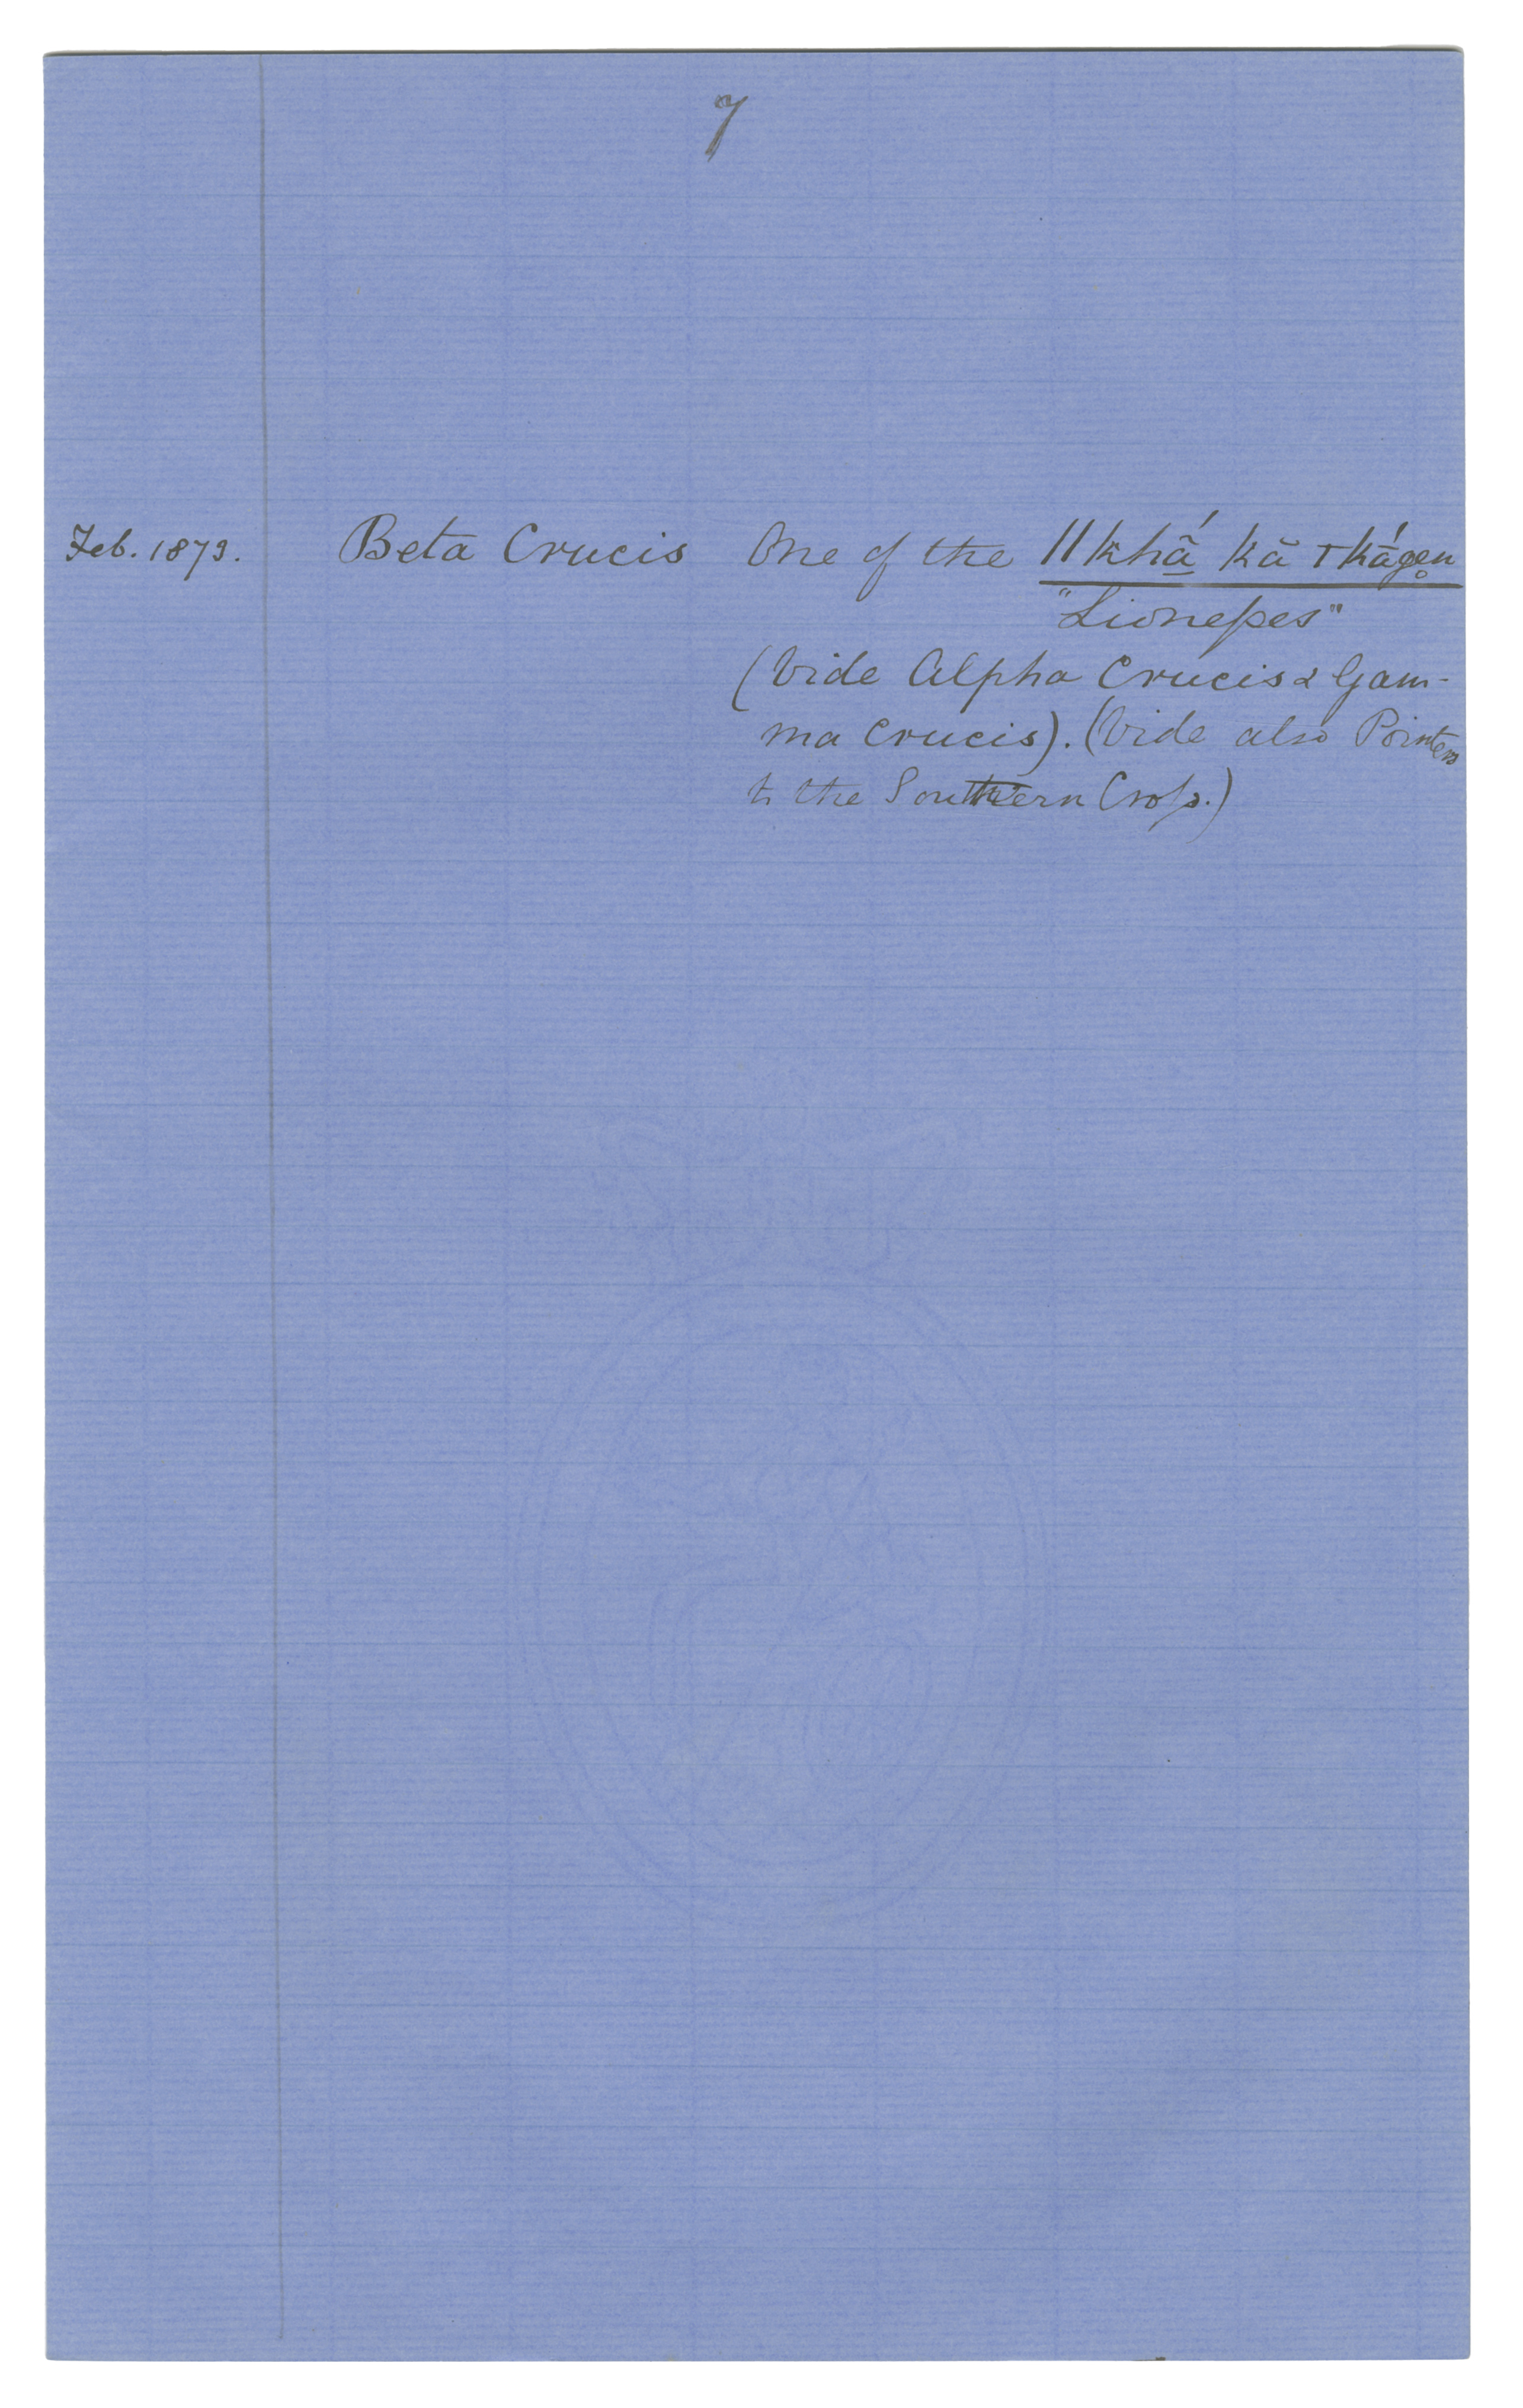 7
Feb. 1873. Beta Crucis One of the ǁkhã́ kă ⊤kắgen̥
"Lionesses"
(Vide Alpha Crucis & Gam-
ma Crucis). (Vide also Pointers
to the Southern Cross.)